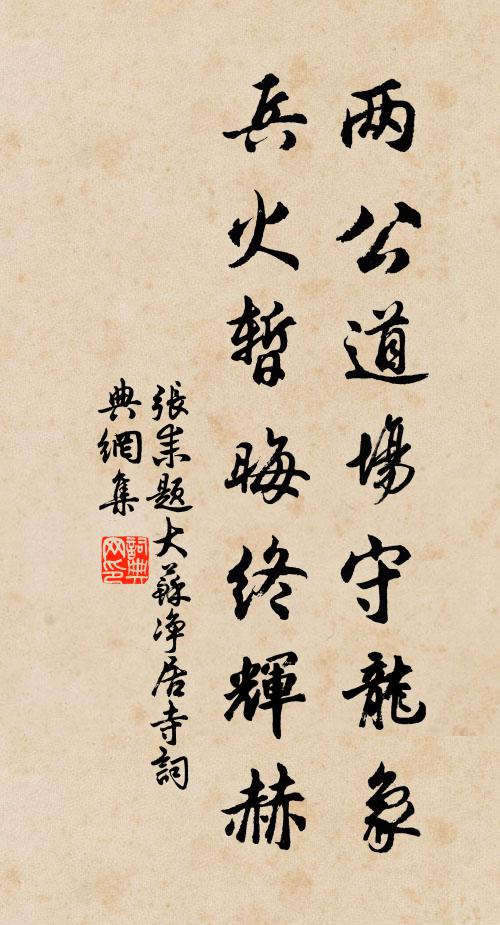 两公道場守龍象
兵火暫晦終輝赫
張耒题大蘇净居寺詞
典網集
詞典網印